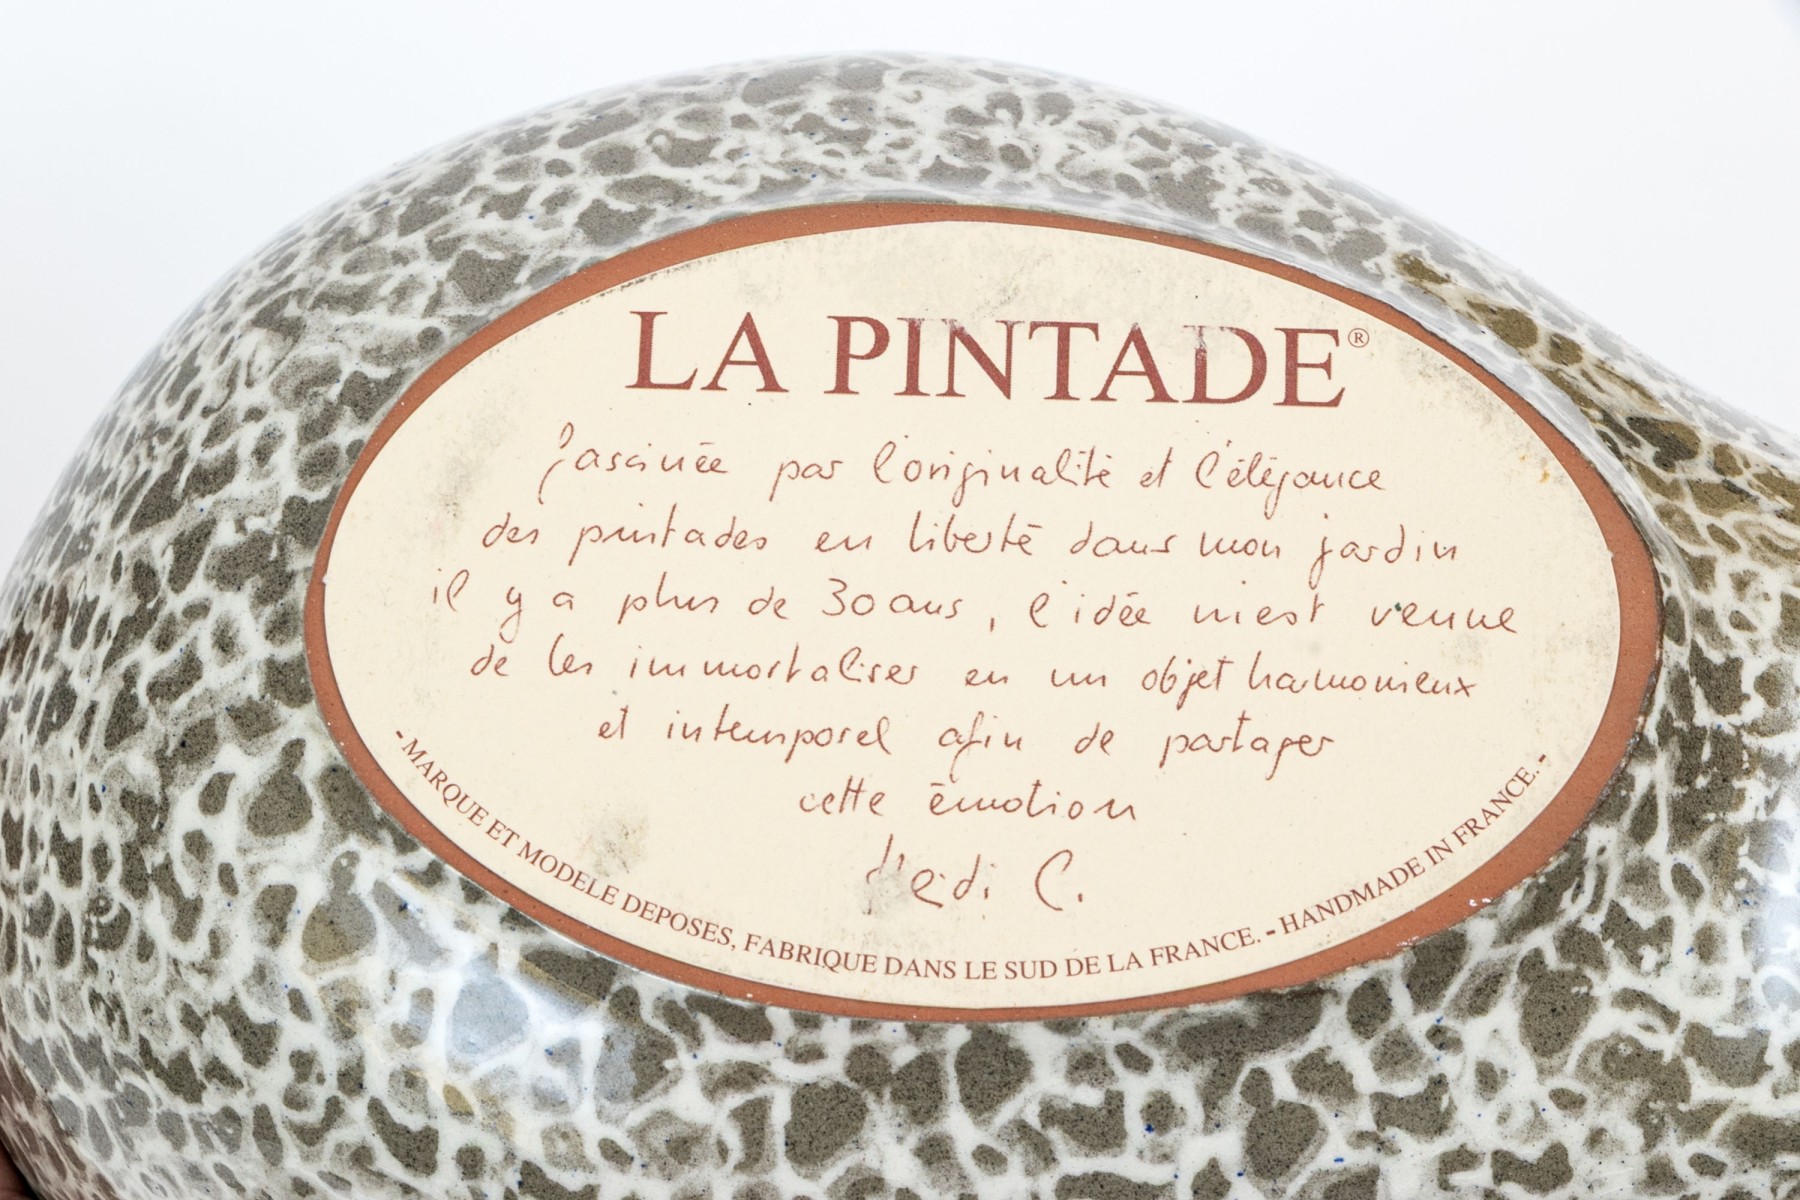 LA PINTADE®
fascinée par l'originalité et l'élégance
des pintades en liberté dans mon jardin
il y a plus de 30 ans, l'idée m'est venue
de les immortaliser en un objet harmonieux
et intemporel afin de partager
cette émotion
d'edi C.
- MARQUE ET MODELE DEPOSES, FABRIQUE DANS LE SUD DE LA FRANCE. - HANDMADE IN FRANCE. -